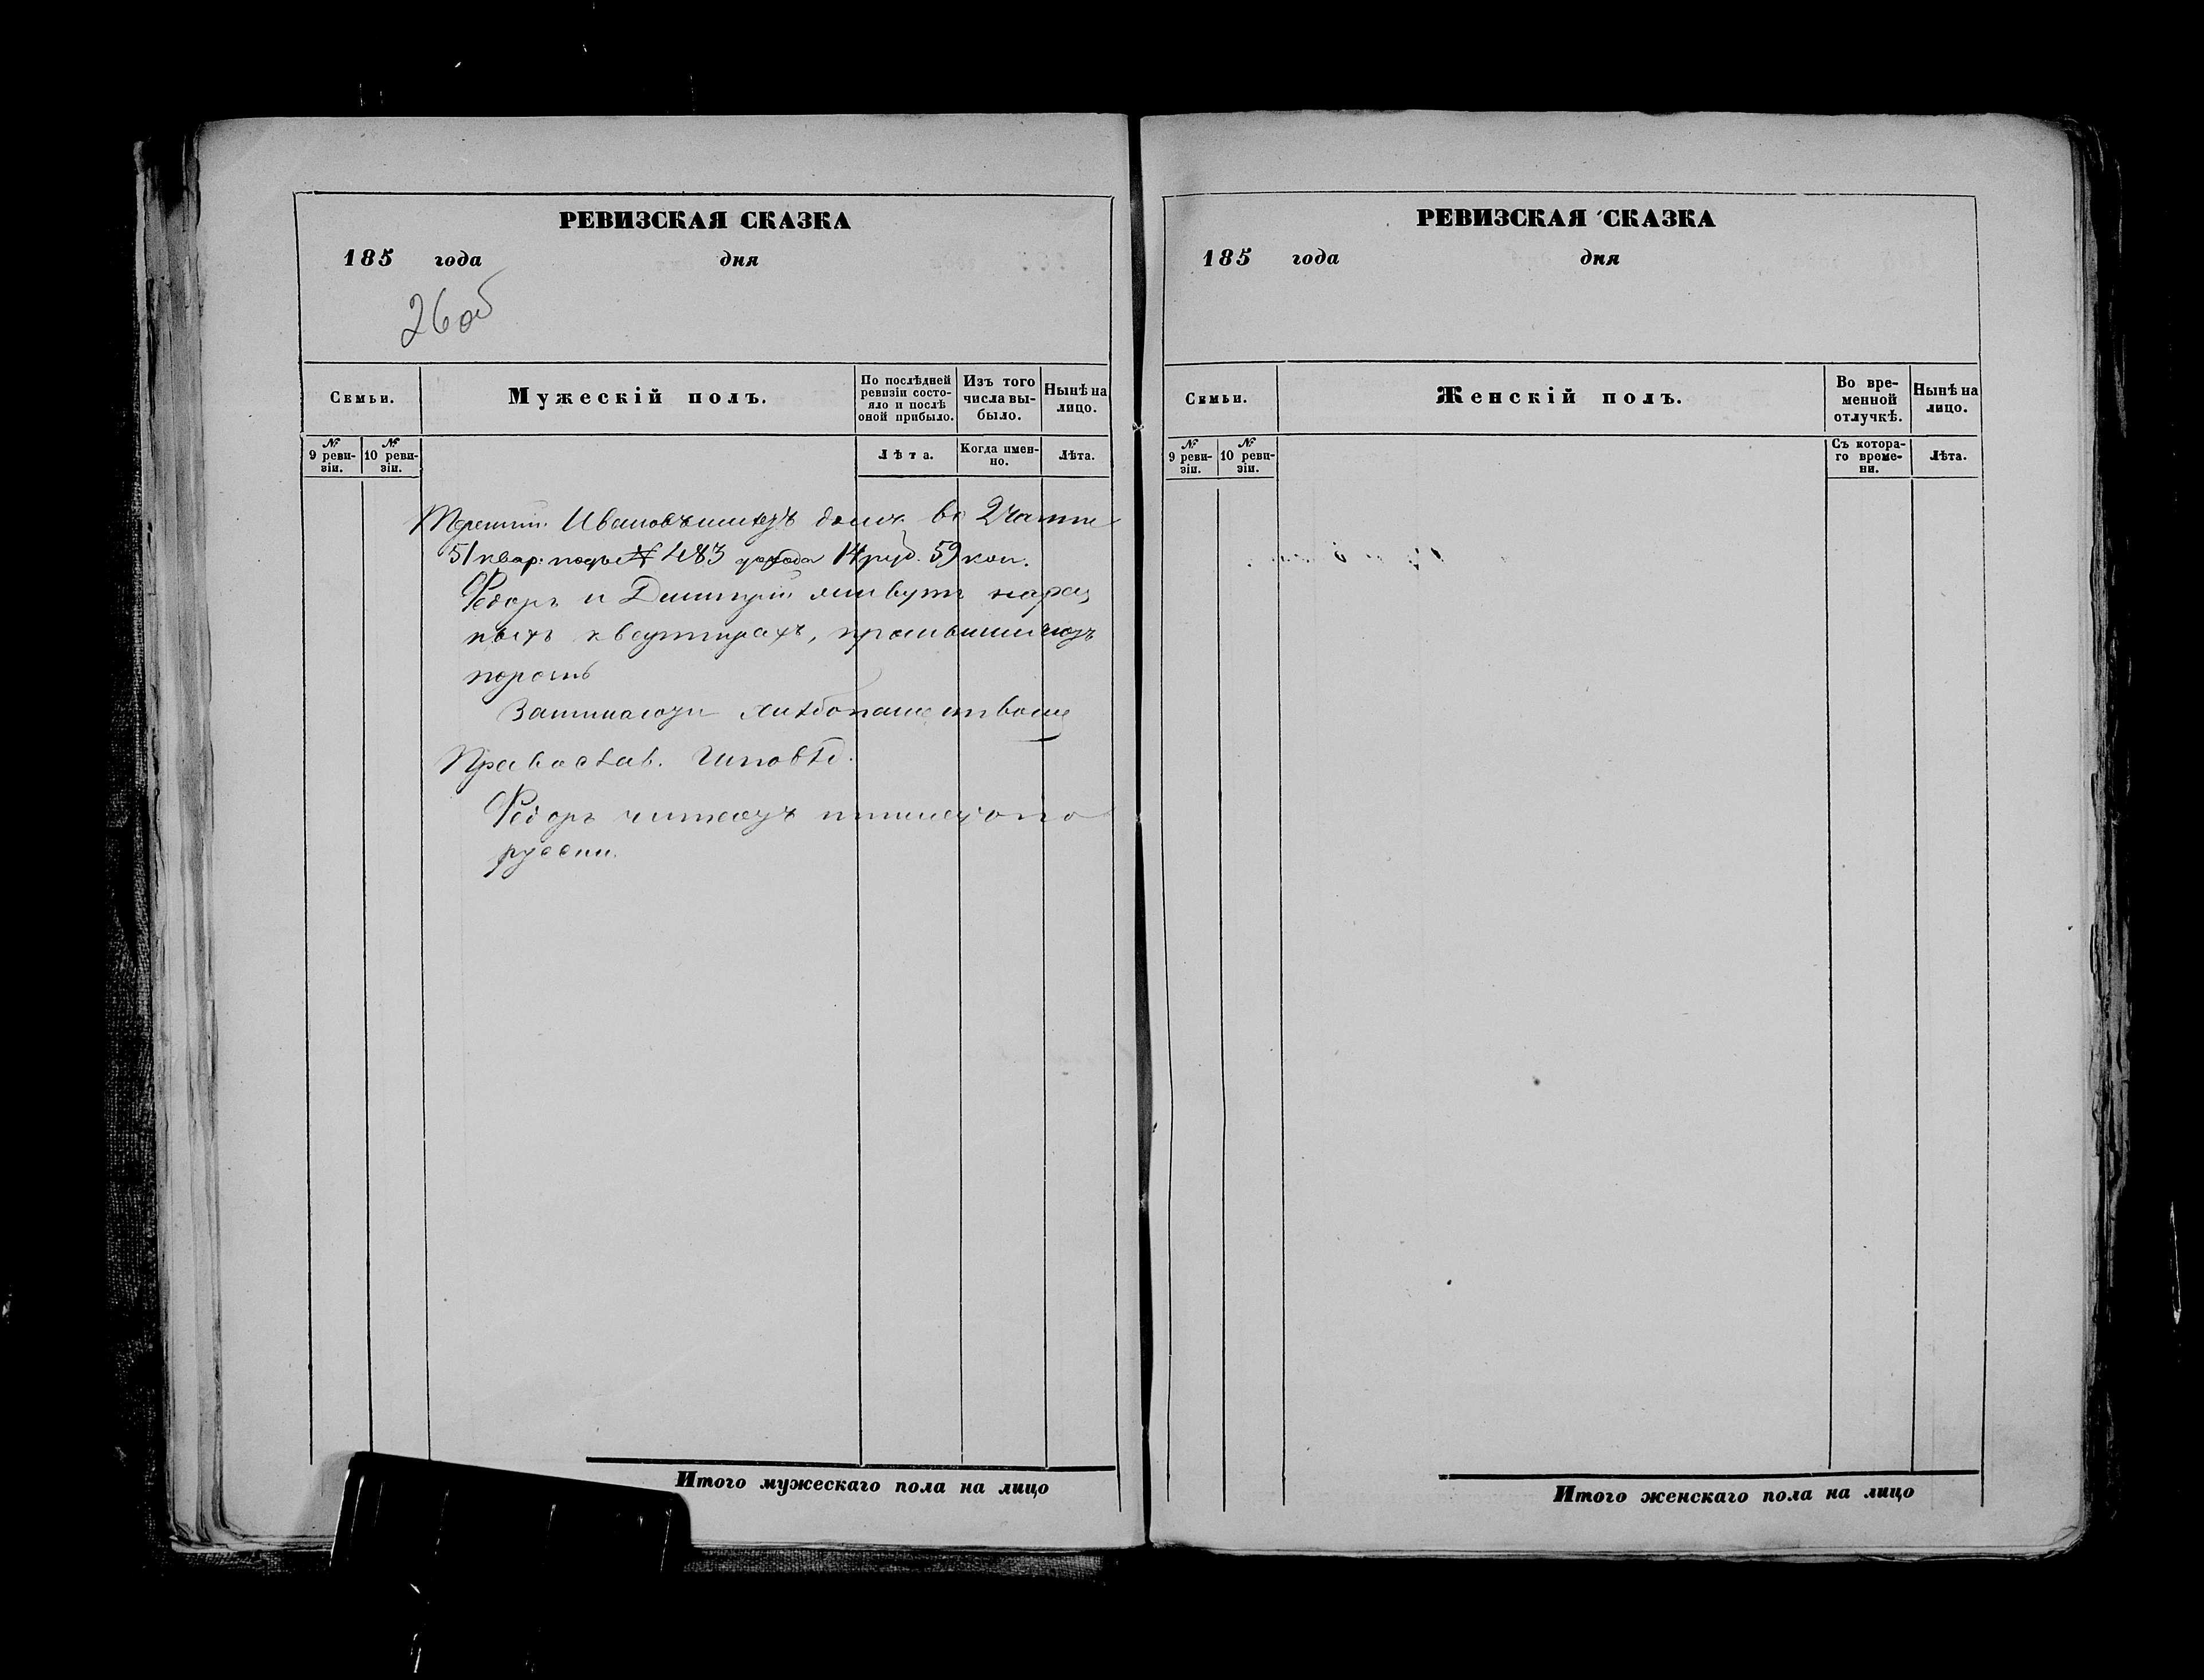 РЕВИЗСКАЯ СКАЗКА
185 года дня
26об
Семьи.
Мужескій полъ.
По послѣдней ревизіи состо-
яло и послѣ
оной прибыло.
Изъ того
числа вы-
было.
Нынѣ на
лицо.
№
9 реви-
зіи.
№
10 реви-
зіи.
Лѣта.
Когда имен-
но.
Лѣта.
Ивановъ имѣетъ домъ во 2 части
51 квар: подъ № 483 дохода 14 руб. 59 коп.
Федоръ и Димитрій живутъ на раз
ныхъ квартирахъ,
порознь
Занимаются хлѣбопашествомъ
Православ. Исповѣд.
Федоръ читаетъ и пишетъ по
русски.
Итого мужескаго пола на лицо
РЕВИЗСКАЯ СКАЗКА
185 года дня
Семьи.
Женскій полъ.
Во вре-
менной
отлучкѣ.
Нынѣ на
лицо.
№
9 реви-
зіи.
№
10 реви-
зіи.
Съ котора-
го време-
ни.
Лѣта.
Итого женскаго пола на лицо